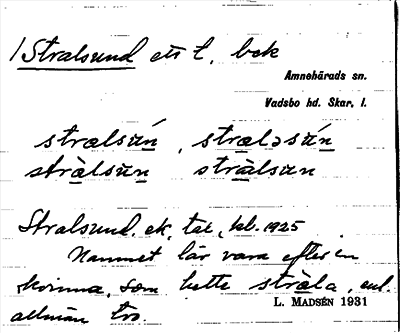 Stralsund ett t, bek
Amnehärads sn.
Vadsbo hd. Skar. l.
strælsún, strælǝsún
stràlsun stràlsun
Stralsund. ek. tal, kb. 1925
Namnet lär vara efter en
kvinna, som hette stràla, enl.
allmän tro.
L. MADSÉN 1931